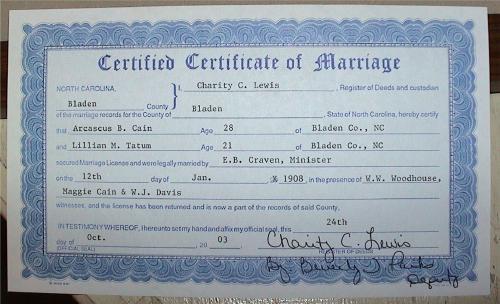 Certified Certificate of Marriage
NORTH CAROLINA, } I, Charity C. Lewis , Register of Deeds and custodian
Bladen County
of the marriage records for the County of Bladen State of North Carolina, hereby certify
that Arcascus B. Cain Age 28 of Bladen Co., NC
and Lillian M. Tatum Age 21 of Bladen Co., NC
secured Marriage License and were legally married by E.B. Craven, Minister
on the 12th day of Jan. 1908, in the presence of W.W. Woodhouse,
Maggie Cain & W.J. Davis
witnesses, and the license has been returned and is now a part of the records of said County.
IN TESTIMONY WHEREOF, I hereunto set my hand and affix my official seal, this 24th
day of Oct. , 20 03 Charity C. Lewis
(OFFICIAL SEAL) REGISTER OF DEEDS
By: Beverly T. Parks
Deputy